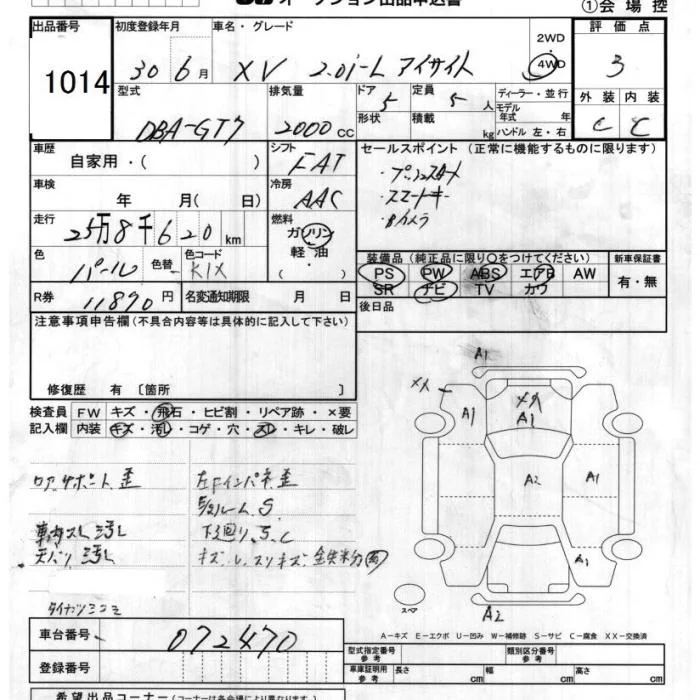 オークション出品申込書
①会場控
出品番号 初度登録年月 車名・グレード 評価点
1014 30 6月 XV 2.0i-L アイサイト 2WD 4WD 3
型式 排気量 ドア 5 定員 5人 ディーラー・並行 外装 内装
DBA-GT7 2000 CC 形状 積載 kg モデル年式 年 C C
ハンドル 左・右
車歴 シフト セールスポイント (正常に機能するものに限ります)
自家用・( ) FAT ・プッシュスタート
車検 冷房 ・スマートキー
年 月( 日) AAC ・Bカメラ
走行 燃料
25万8千620km ガソリン
軽・油
・( )
色 色替 色コード 装備品 (純正品に限り○をつけてください) 新車保証書
パール KIX PS PW ABS エアB AW 有・無
SR ナビ TV カワ
R券 11890円 名変通知期限 月 日 後日品
注意事項申告欄 (不具合内容等は具体的に記入して下さい)
修復歴 有 〔箇所 〕
検査員 FW キズ・飛石・ヒビ割・リペア跡・×要
記入欄 内装 キズ・汚れ・コゲ・穴・スレ・キレ・破レ
A1
XX A1 XX A1
A2 A1
A1
A2
コアサポート歪 左Fインパネ歪
E/gルーム S
車内スレ汚レ 下廻り S、C
天バリ汚レ キズ、
スペア
A－キズ E－エクボ U－凹み W－補修跡 S－サビ C－腐食 XX－交換済
車台番号 072470
登録番号
型式指定番号 参考 類別区分番号 参考
車庫証明用 参考 長さ cm 幅 cm 高さ cm
希望出品コーナー